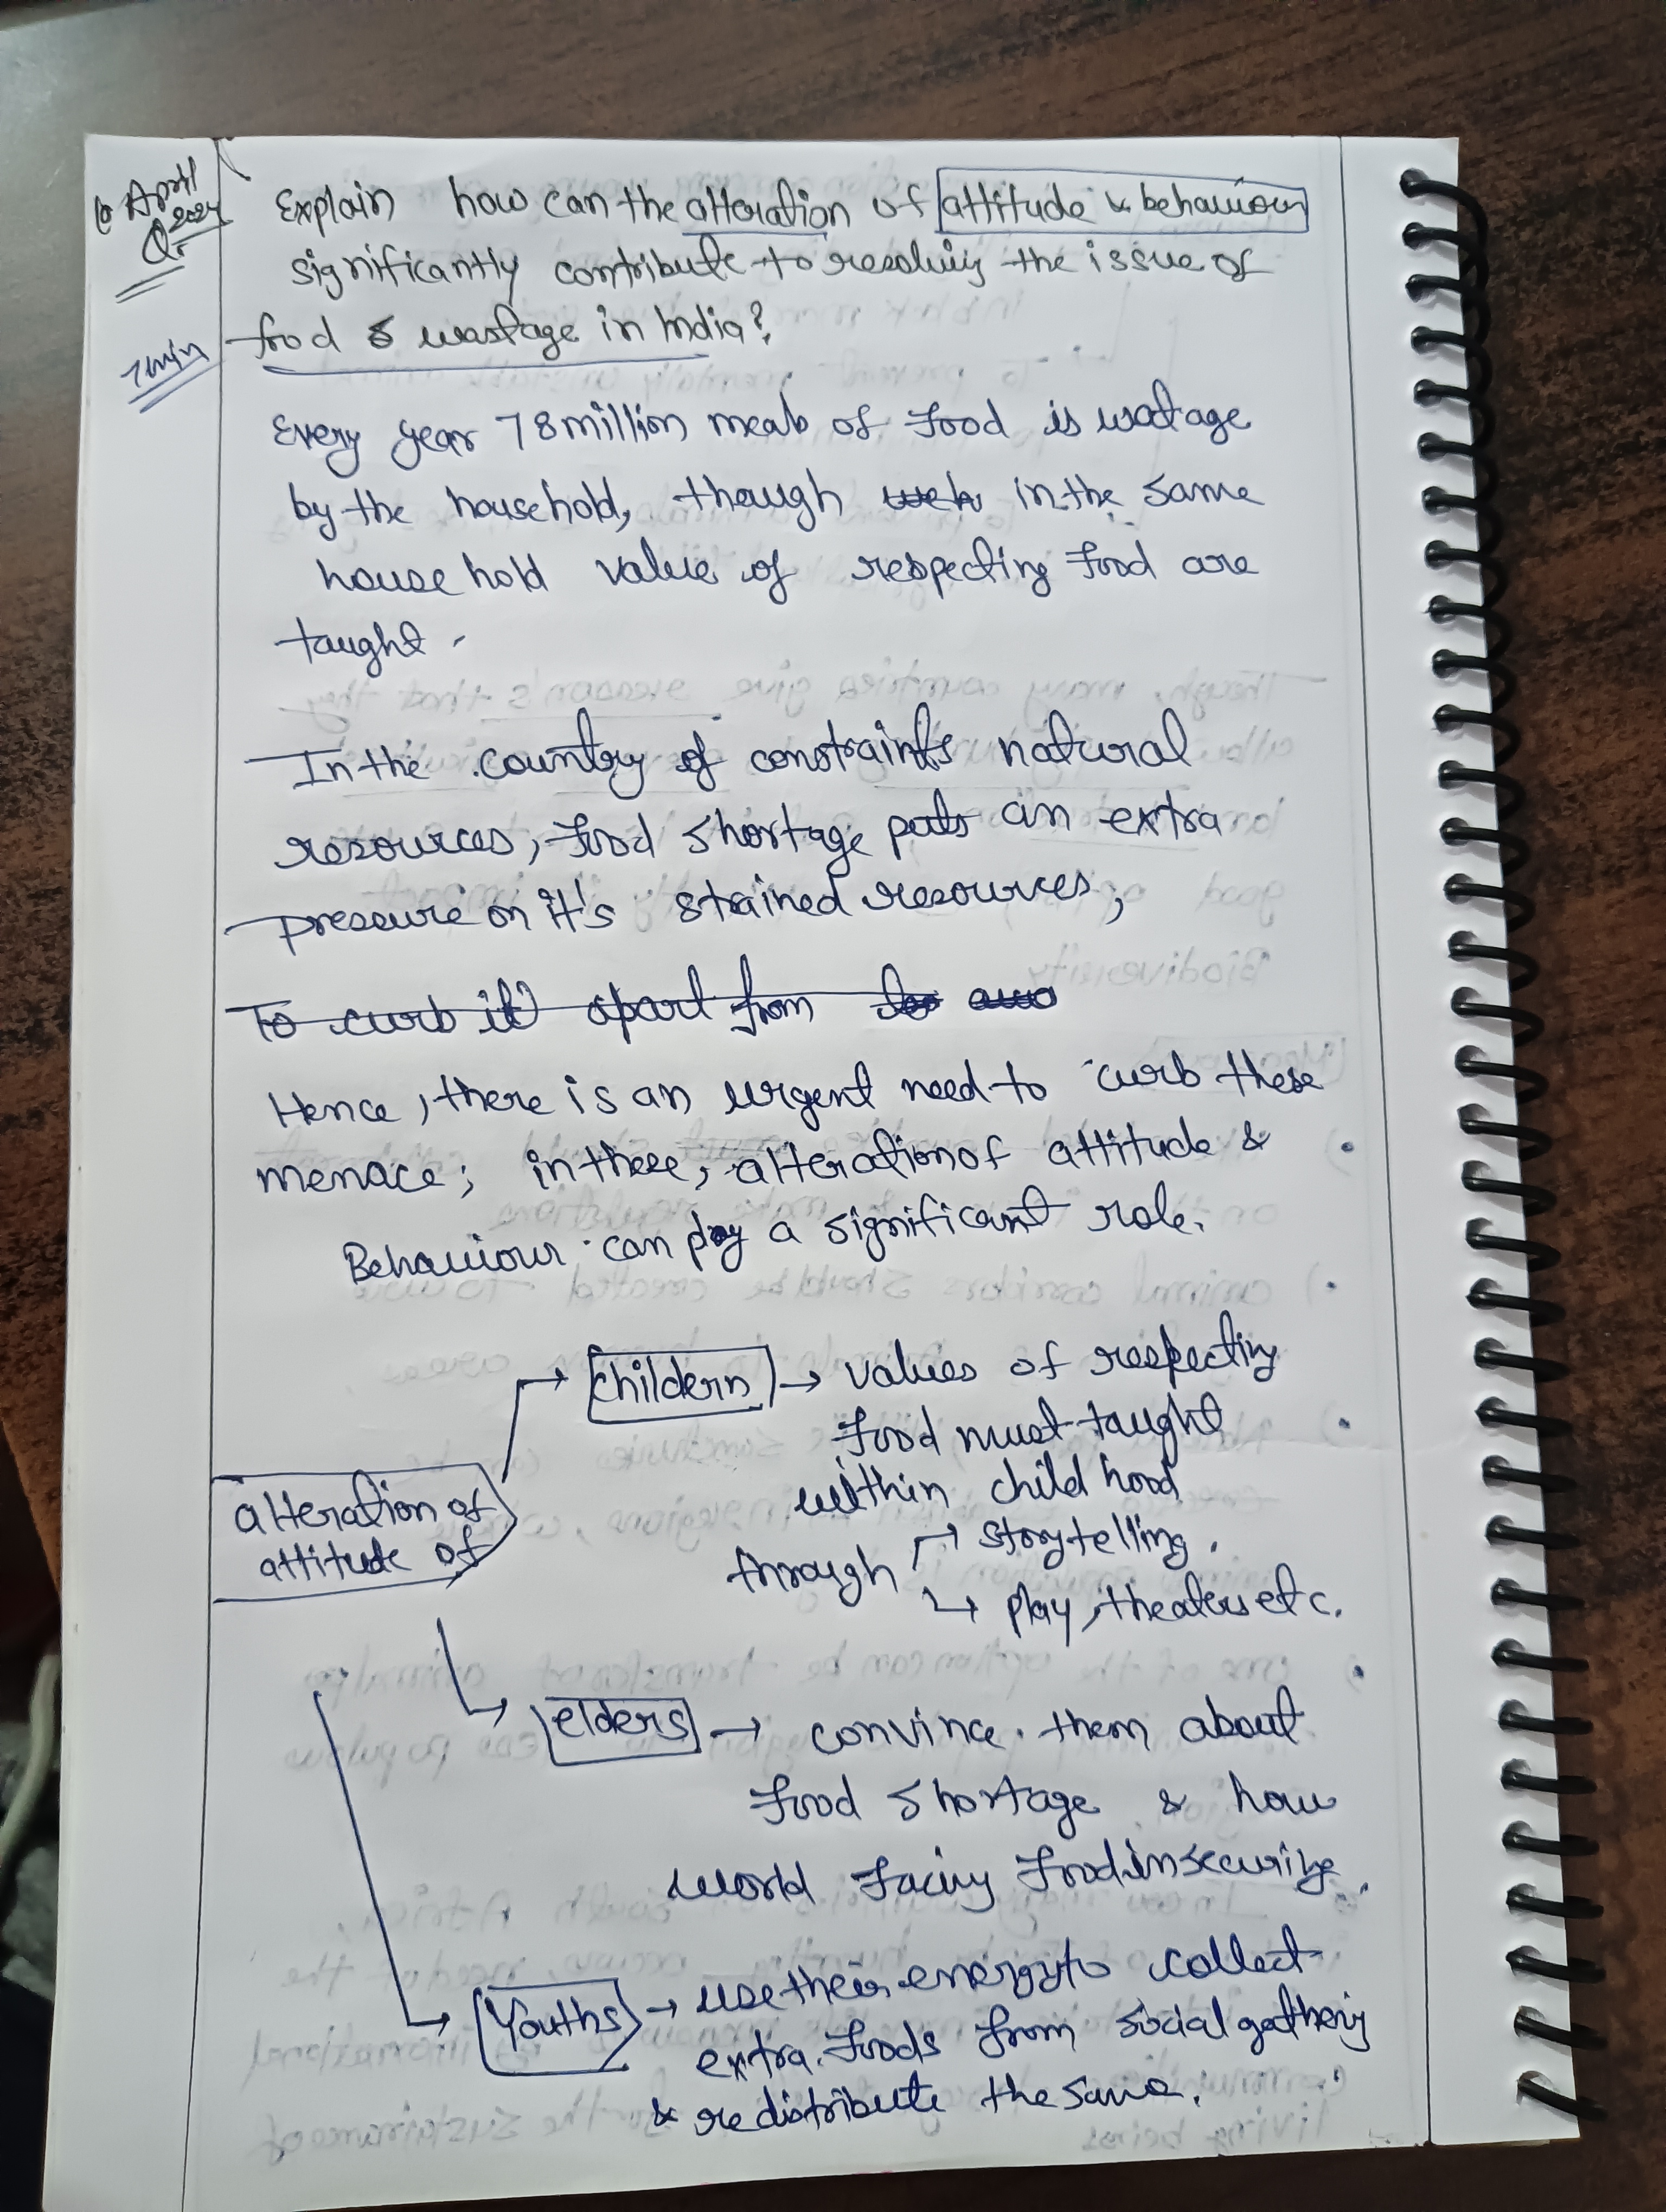 10 April 2024
Q.
7 min
Explain how can the alteration of attitude & behaviour
significantly contribute to resolving the issue of
food & wastage in India?
Every year 78 million meals of food is watage
by the household, though in the same
house hold value of respecting food are
taught.
In the country of constraints natural
resources, food shortage puts an extra
pressure on it's strained resources,
To curb it apart from
Hence, there is an urgent need to curb these
menace; in these, alteration of attitude &
Behaviour can play a significant role.
childern → values of respecting
food must taught
within child hood
alteration of
attitude of
through → storytelling.
→ play, theaters etc.
elders → convince them about
food shortage & how
world facing food insecurity.
Youths → use their energy to collect
extra foods from social gathering
& redistribute the same.